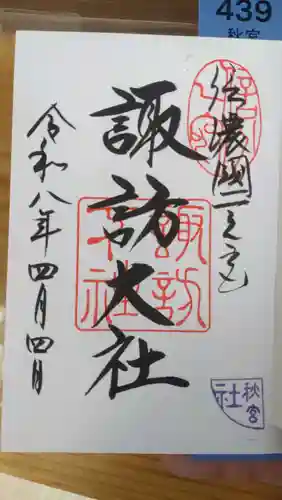 439
秋宮
信濃國一之宮
諏訪大社
諏訪大社
令和八年四月四日
秋宮
社